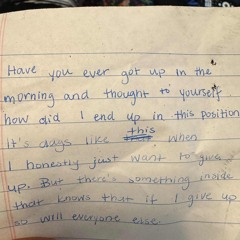 Have you ever got up in the
morning and thought to yourself
how did I end up in this position
It's days like this when
I honestly just want to give
up. But there's something inside
that knows that if I give up
so will everyone else